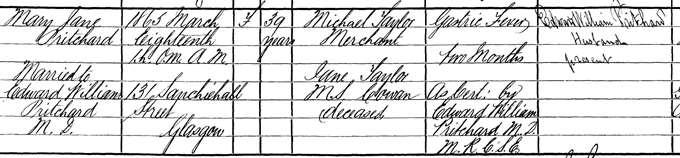 Mary Jane
Pritchard
Married to
Edward William
Pritchard
M. D.
1865 March
Eighteenth
1h. 0m. A.M.
131 Sauchiehall
Street
Glasgow
F
39
years
Michael Taylor
Merchant
Jane Taylor
M.S. Cowan
deceased
Gastric Fever
Two Months
As Cert: by
Edward William
Pritchard M.D.
M.R.C.S.E.
Edward William Pritchard
Husband
present